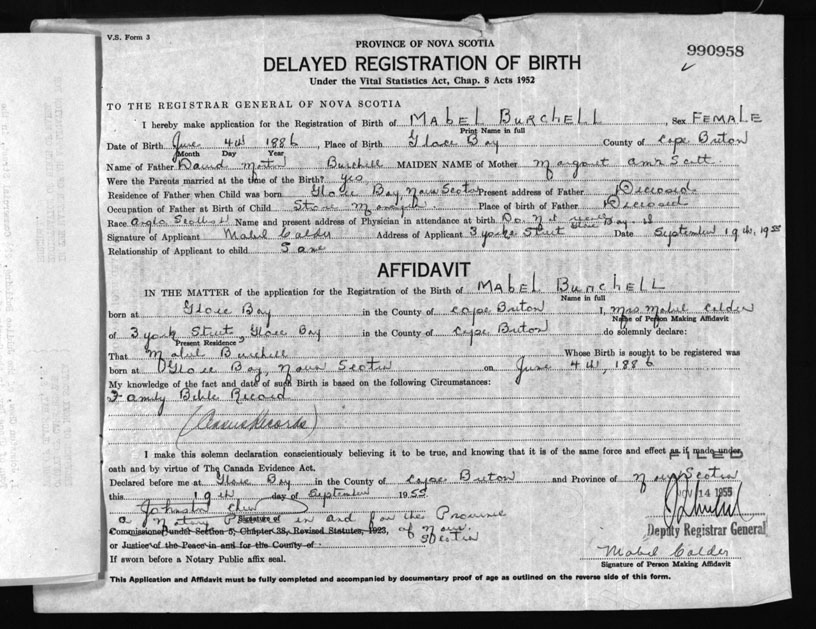 V.S. Form 3
PROVINCE OF NOVA SCOTIA
990958
DELAYED REGISTRATION OF BIRTH
Under the Vital Statistics Act, Chap. 8 Acts 1952
TO THE REGISTRAR GENERAL OF NOVA SCOTIA
I hereby make application for the Registration of Birth of MABEL BURCHELL, Sex FEMALE
Print Name in full
Date of Birth June 4th 1886, Place of Birth Glace Bay County of Cape Breton
Month Day Year
Name of Father David Burchell MAIDEN NAME of Mother Margaret Ann Scott
Were the Parents married at the time of the Birth? yes
Residence of Father when Child was born Glace Bay, Nova Scotia Present address of Father Deceased
Occupation of Father at Birth of Child Store Place of birth of Father Deceased
Race Anglo Scottish Name and present address of Physician in attendance at birth Do. Not
Signature of Applicant Mabel Calder Address of Applicant 3 York Street Glace Bay Date September 19th, 1955
Relationship of Applicant to child Same
AFFIDAVIT
IN THE MATTER of the application for the Registration of the Birth of MABEL BURCHELL
Name in full
born at Glace Bay in the County of Cape Breton I, Mrs Mabel Calder
Name of Person Making Affidavit
of 3 York Street, Glace Bay in the County of Cape Breton do solemnly declare:
Present Residence
That Mabel Burchell Whose Birth is sought to be registered was
born at Glace Bay, Nova Scotia on June 4th, 1886
My knowledge of the fact and date of such Birth is based on the following Circumstances:
Family Bible Record
(Census Records)
I make this solemn declaration conscientiously believing it to be true, and knowing that it is of the same force and effect as if made under
FILED
oath and by virtue of The Canada Evidence Act.
Declared before me at Glace Bay in the County of Cape Breton and Province of Nova Scotia
this 19th day of September 1955
NOV 14 1955
Johnston
a Notary Public in and for the Province of Nova Scotia
Signature of
Commissioner under Section 5, Chapter 38, Revised Statutes, 1923,
Deputy Registrar General
or Justice of the Peace in and for the County of
Mabel Calder
If sworn before a Notary Public affix seal.
Signature of Person Making Affidavit
This Application and Affidavit must be fully completed and accompanied by documentary proof of age as outlined on the reverse side of this form.